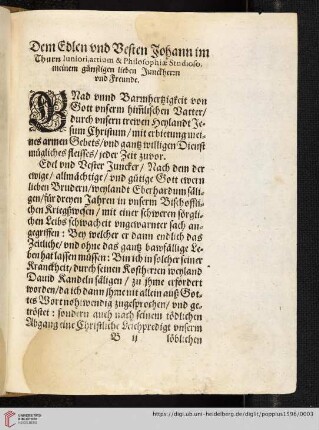 Dem Edlen vnd Vesten Johann im
Thurn Iuniori, artium & Philosophiæ Studioso,
meinem günstigen lieben Junckhern
vnd Freunde.
GNad vnnd Barmhertzigkeit von
Gott vnserm him̃lischen Vatter/
durch vnsern trewen Heylandt Je-
sum Christum/ mit erbittung mei-
nes armen Gebets/ vnd gantz willigen Dienst
mügliches fleisses/ jeder Zeit zuvor.
Edel vnd Vester Juncker/ Nach dem der
ewige/ allmächtige/ vnd gütige Gott ewern
lieben Brudern/ weylandt Eberhardum säli-
gen/ für dreyen Jahren in vnserm Bischoffli-
chen Kriegswesen/ mit einer schweren sörgli-
chen Leibs schwacheit vngewarnter sach an-
gegriffen: Bey welcher er dann endlich das
Zeitliche/ vnd ohne das gantz bawfällige Le-
ben hat lassen müssen: Bin ich in solcher seiner
Kranckheit/ durch seinen Kostherren weyland
Dauid Kandeln säligen/ zu jhme erfordert
worden/ da ich dann jhme nit allein auß Got-
tes Wort nohtwendig zugesprochen/ vnd ge-
tröstet: sondern auch nach seinem tödlichen
Abgang eine Christliche Leichpredigt vnserm
B ij löblichen
https://digi.ub.uni-heidelberg.de/diglit/poppius1596/0003